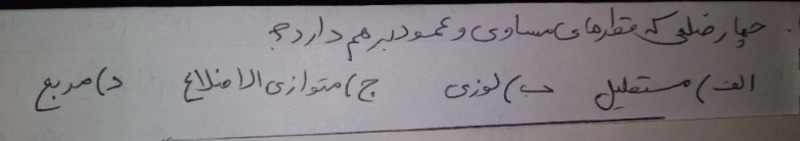 چهارضلعی که قطرهای مساوی و عمود برهم دارد؟
الف) مستطیل ب) لوزی ج) متوازی الاضلاع د) مربع